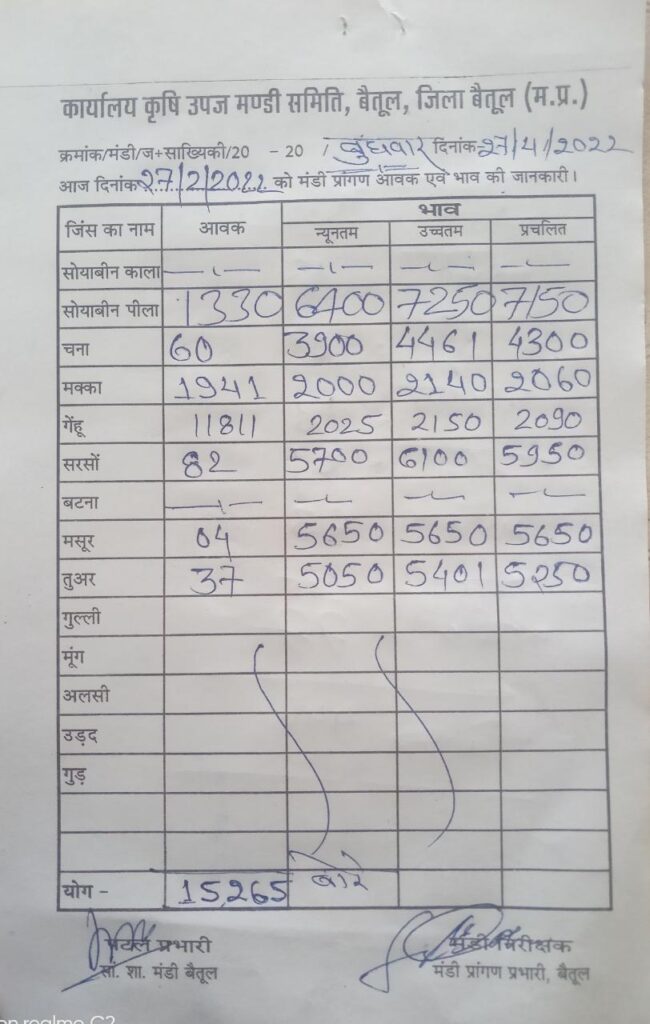 कार्यालय कृषि उपज मण्डी समिति, बैतूल, जिला बैतूल (म.प्र.)
क्रमांक/मंडी/ज+साख्यिकी/20 - 20 / बुधवार दिनांक 27/4/2022
आज दिनांक 27/2/2022 को मंडी प्रांगण आवक एवं भाव की जानकारी।
जिंस का नाम आवक भाव
न्यूनतम उच्चतम प्रचलित
सोयाबीन काला — — — —
सोयाबीन पीला 1330 6400 7250 7150
चना 60 3900 4461 4300
मक्का 1941 2000 2140 2060
गेंहू 11811 2025 2150 2090
सरसों 82 5700 6100 5950
बटना — — — —
मसूर 04 5650 5650 5650
तुअर 37 5050 5401 5250
गुल्ली
मूंग
अलसी
उड़द
गुड़
योग – 15,265 बोरे
प्रभारी मंडी निरीक्षक
सां. शा. मंडी बैतूल मंडी प्रांगण प्रभारी, बैतूल